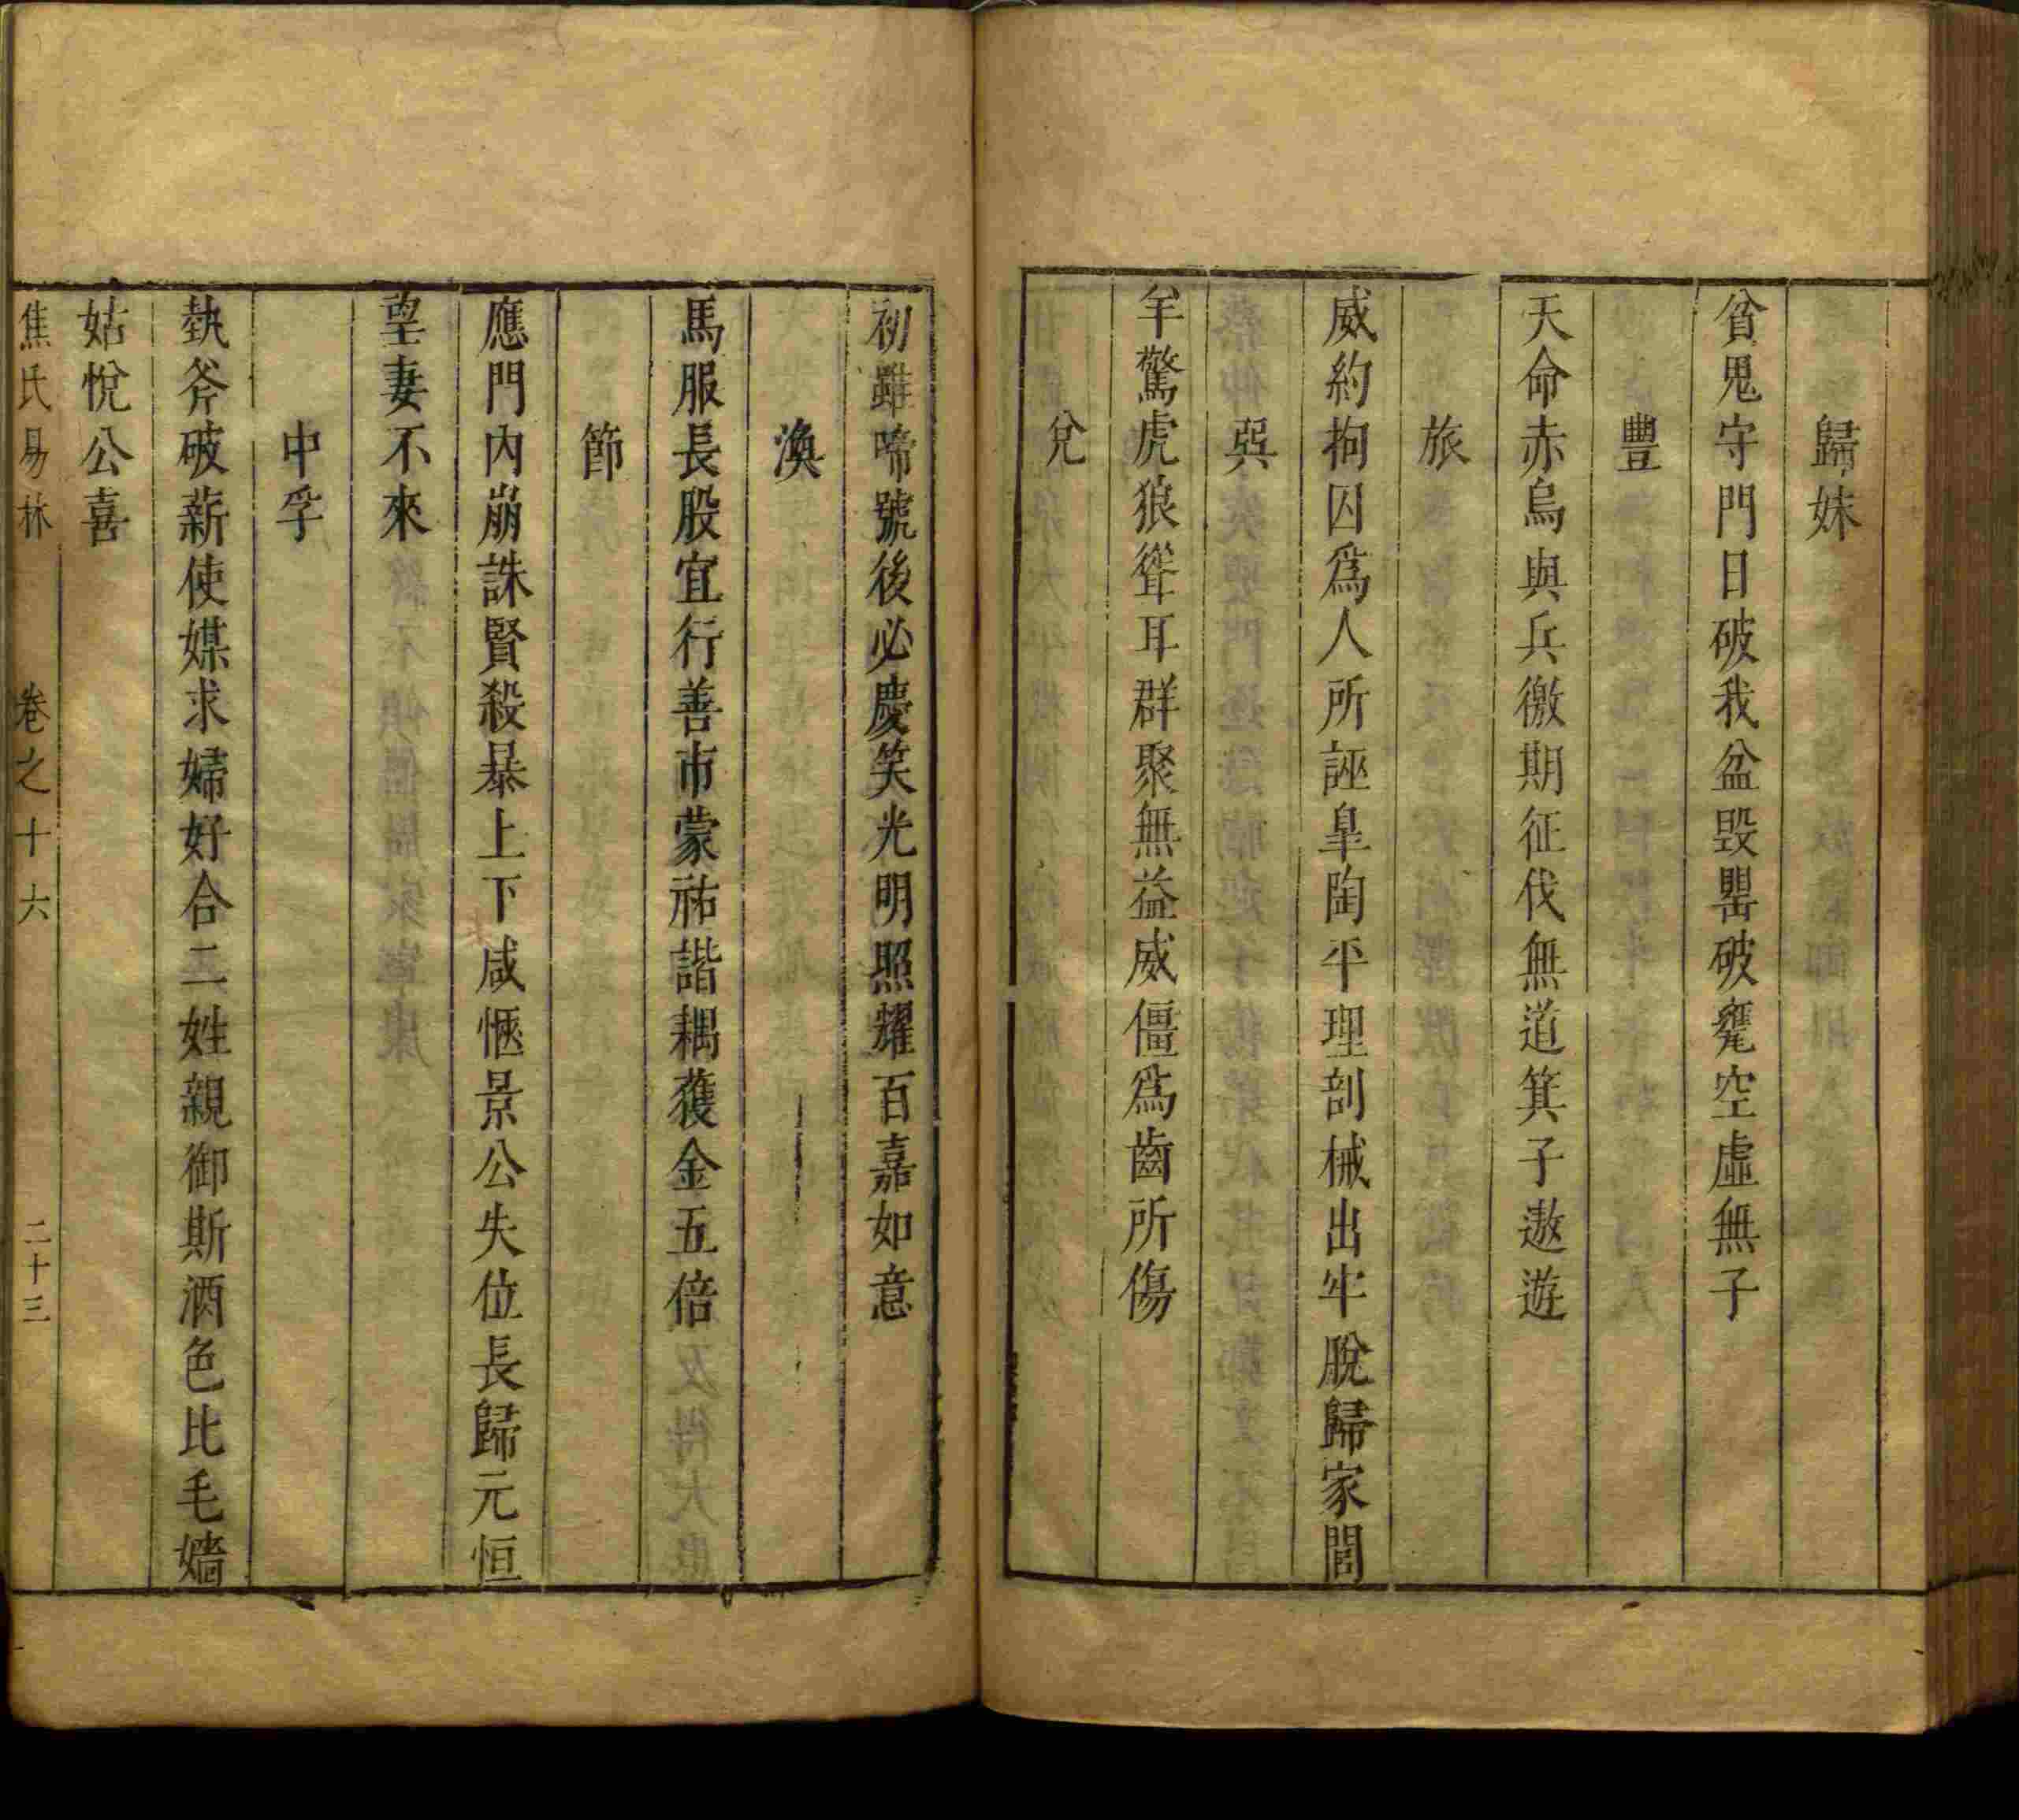 歸妹
貧鬼守門日破我盆毀罌破甕空虛無子
豐
天命赤烏與兵徼期征伐無道箕子遨遊
旅
威約拘囚爲人所誣皐陶平理剖械出牢脫歸家閭
巽
羊驚虎狼聳耳群聚無益威僵爲齒所傷
兌
初雖啼號後必慶笑光明照耀百嘉如意
渙
馬服長股宜行善市蒙祐諧耦獲金五倍
節
應門內崩誅賢殺暴上下咸悖景公失位長歸元恒
望妻不來
中孚
執斧破薪使媒求婦好合二姓親御斯酒色比毛嬙
姑悅公喜
焦氏易林 卷之十六 二十三